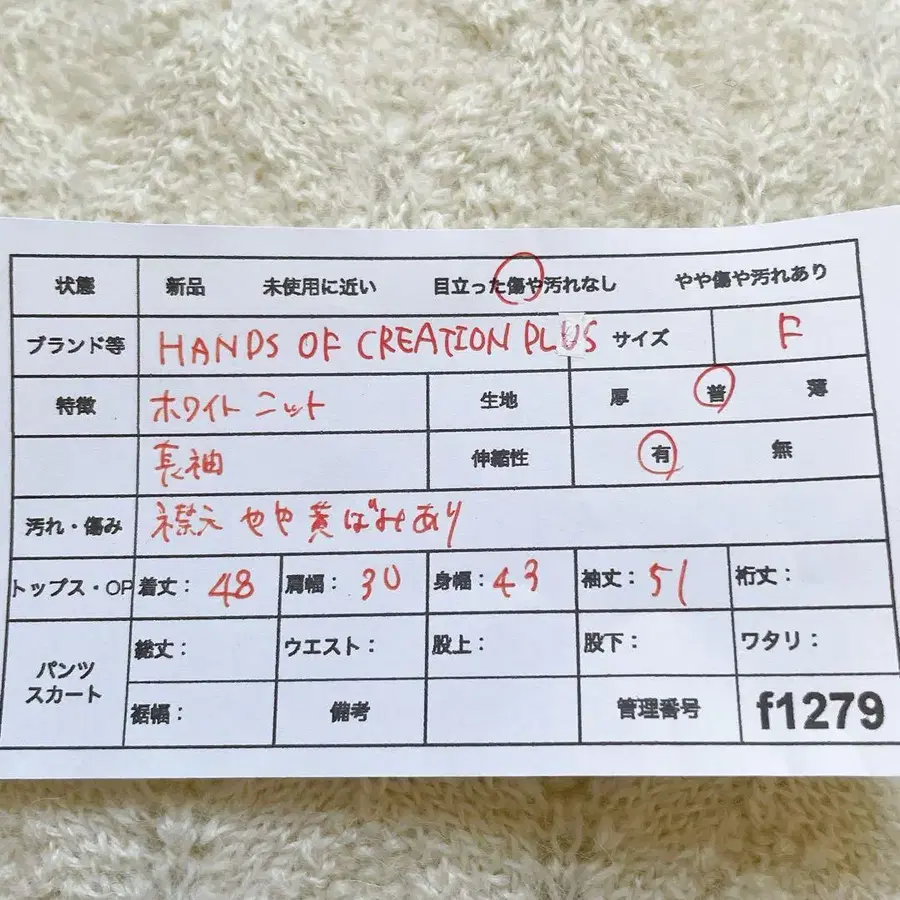 状態 新品 未使用に近い 目立った傷や汚れなし やや傷や汚れあり
ブランド等 HANDS OF CREATION PLUS サイズ F
特徴 ホワイト ニット 生地 厚 普 薄
長袖 伸縮性 有 無
汚れ・傷み 襟元 やや黄ばみあり
トップス・OP 着丈: 48 肩幅: 30 身幅: 43 袖丈: 51 裄丈:
パンツ スカート 総丈: ウエスト: 股上: 股下: ワタリ:
裾幅: 備考 管理番号 f1279